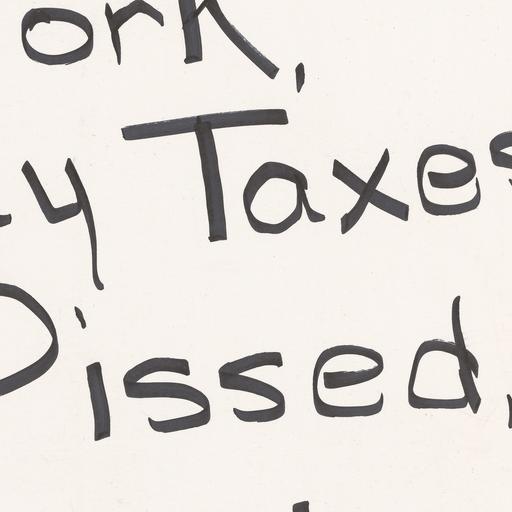 ork,
y Taxes
issed,